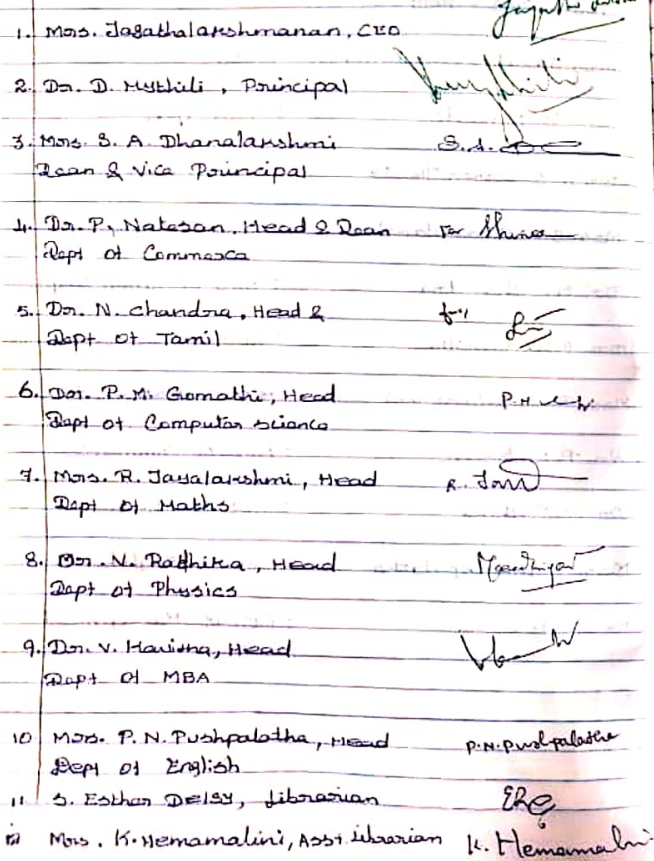 1. Mrs. Jagathalakshmanan, CEO
2. Dr. D. Mythili, Principal
3. Mrs. S. A. Dhanalakshmi S.A.
Dean & Vice Principal
4. Dr. P. Natesan, Head & Dean for
Dept of Commerce
5. Dr. N. Chandra, Head & for
Dept of Tamil
6. Dr. P. M. Gomathi, Head P.M
Dept of Computer Science
7. Mrs. R. Jayalakshmi, Head R.
Dept of Maths
8. Dr. N. Radhika, Head
Dept of Physics
9. Dr. V. Harista, Head
Dept of MBA
10 Mrs. P. N. Pushpalatha, Head P.N.Pushpalatha
Dept of English
11 S. Esther DEISY, Librarian
12 Mrs. K. Hemamalini, Asst Librarian K. Hemamalini